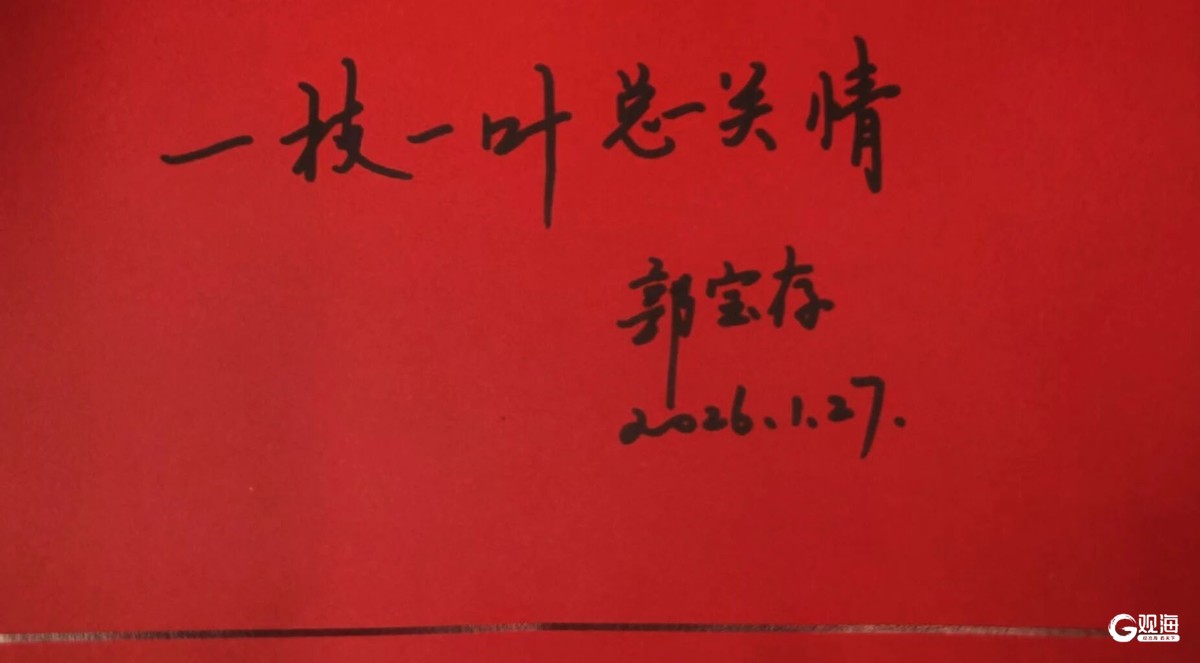 一枝一叶总关情
郭宝存
2026.1.27.
观海